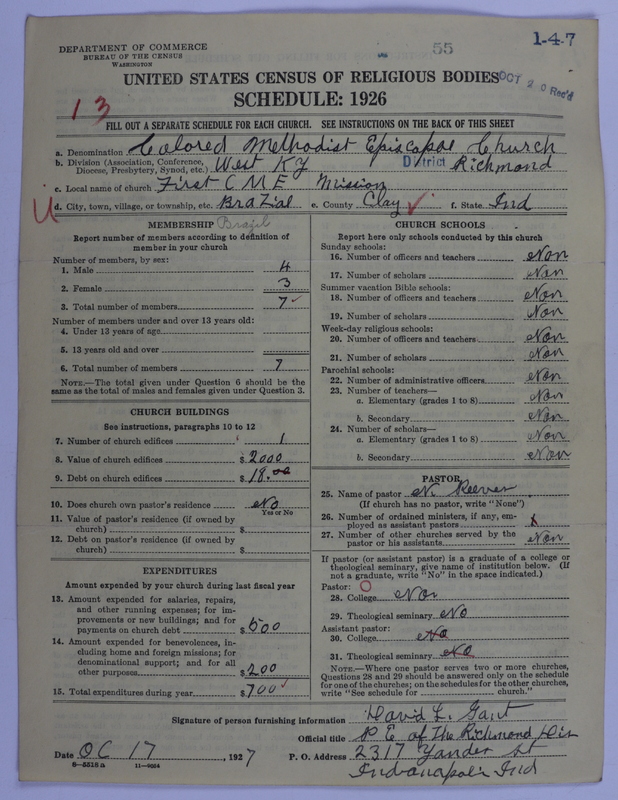 DEPARTMENT OF COMMERCE
BUREAU OF THE CENSUS
WASHINGTON
55
1-4-7
UNITED STATES CENSUS OF RELIGIOUS BODIES
OCT 20 Rec'd
SCHEDULE: 1926
13
FILL OUT A SEPARATE SCHEDULE FOR EACH CHURCH. SEE INSTRUCTIONS ON THE BACK OF THIS SHEET
a. Denomination Colored Methodist Episcopal Church
b. Division (Association, Conference, Diocese, Presbytery, Synod, etc.) West KY District Richmond
c. Local name of church First C M E Mission
d. City, town, village, or township, etc. BraZial e. County Clay f. State Ind
MEMBERSHIP Brazil
Report number of members according to definition of
member in your church
Number of members, by sex:
1. Male 4
2. Female 3
3. Total number of members 7
Number of members under and over 13 years old:
4. Under 13 years of age
5. 13 years old and over
6. Total number of members 7
NOTE.—The total given under Question 6 should be the
same as the total of males and females given under Question 3.
CHURCH BUILDINGS
See instructions, paragraphs 10 to 12
7. Number of church edifices 1
8. Value of church edifices $2000
9. Debt on church edifices $18.00
10. Does church own pastor's residence No
Yes or No
11. Value of pastor's residence (if owned by
church) $
12. Debt on pastor's residence (if owned by
church) $
EXPENDITURES
Amount expended by your church during last fiscal year
13. Amount expended for salaries, repairs,
and other running expenses; for im-
provements or new buildings; and for
payments on church debt $500
14. Amount expended for benevolences, in-
cluding home and foreign missions; for
denominational support; and for all
other purposes $200
15. Total expenditures during year $700
CHURCH SCHOOLS
Report here only schools conducted by this church
Sunday schools:
16. Number of officers and teachers Non
17. Number of scholars Non
Summer vacation Bible schools:
18. Number of officers and teachers Non
19. Number of scholars Non
Week-day religious schools:
20. Number of officers and teachers Non
21. Number of scholars Non
Parochial schools:
22. Number of administrative officers Non
23. Number of teachers—
a. Elementary (grades 1 to 8) Non
b. Secondary Non
24. Number of scholars—
a. Elementary (grades 1 to 8) Non
b. Secondary Non
PASTOR
25. Name of pastor N. Reever
(If church has no pastor, write "None")
26. Number of ordained ministers, if any, em-
ployed as assistant pastors
27. Number of other churches served by the
pastor or his assistants Non
If pastor (or assistant pastor) is a graduate of a college or
theological seminary, give name of institution below. (If
not a graduate, write "No" in the space indicated.)
Pastor:
28. College Non
29. Theological seminary No
Assistant pastor:
30. College No
31. Theological seminary No
NOTE.—Where one pastor serves two or more churches,
Questions 28 and 29 should be answered only on the schedule
for one of the churches; on the schedules for the other churches,
write "See schedule for church."
Signature of person furnishing information David L. Gant
Official title P E of The Richmond Dis
Date OC 17, 1927 P. O. Address 2317 Yandes St
6-5518 a 11-9664
Indianapolis Ind